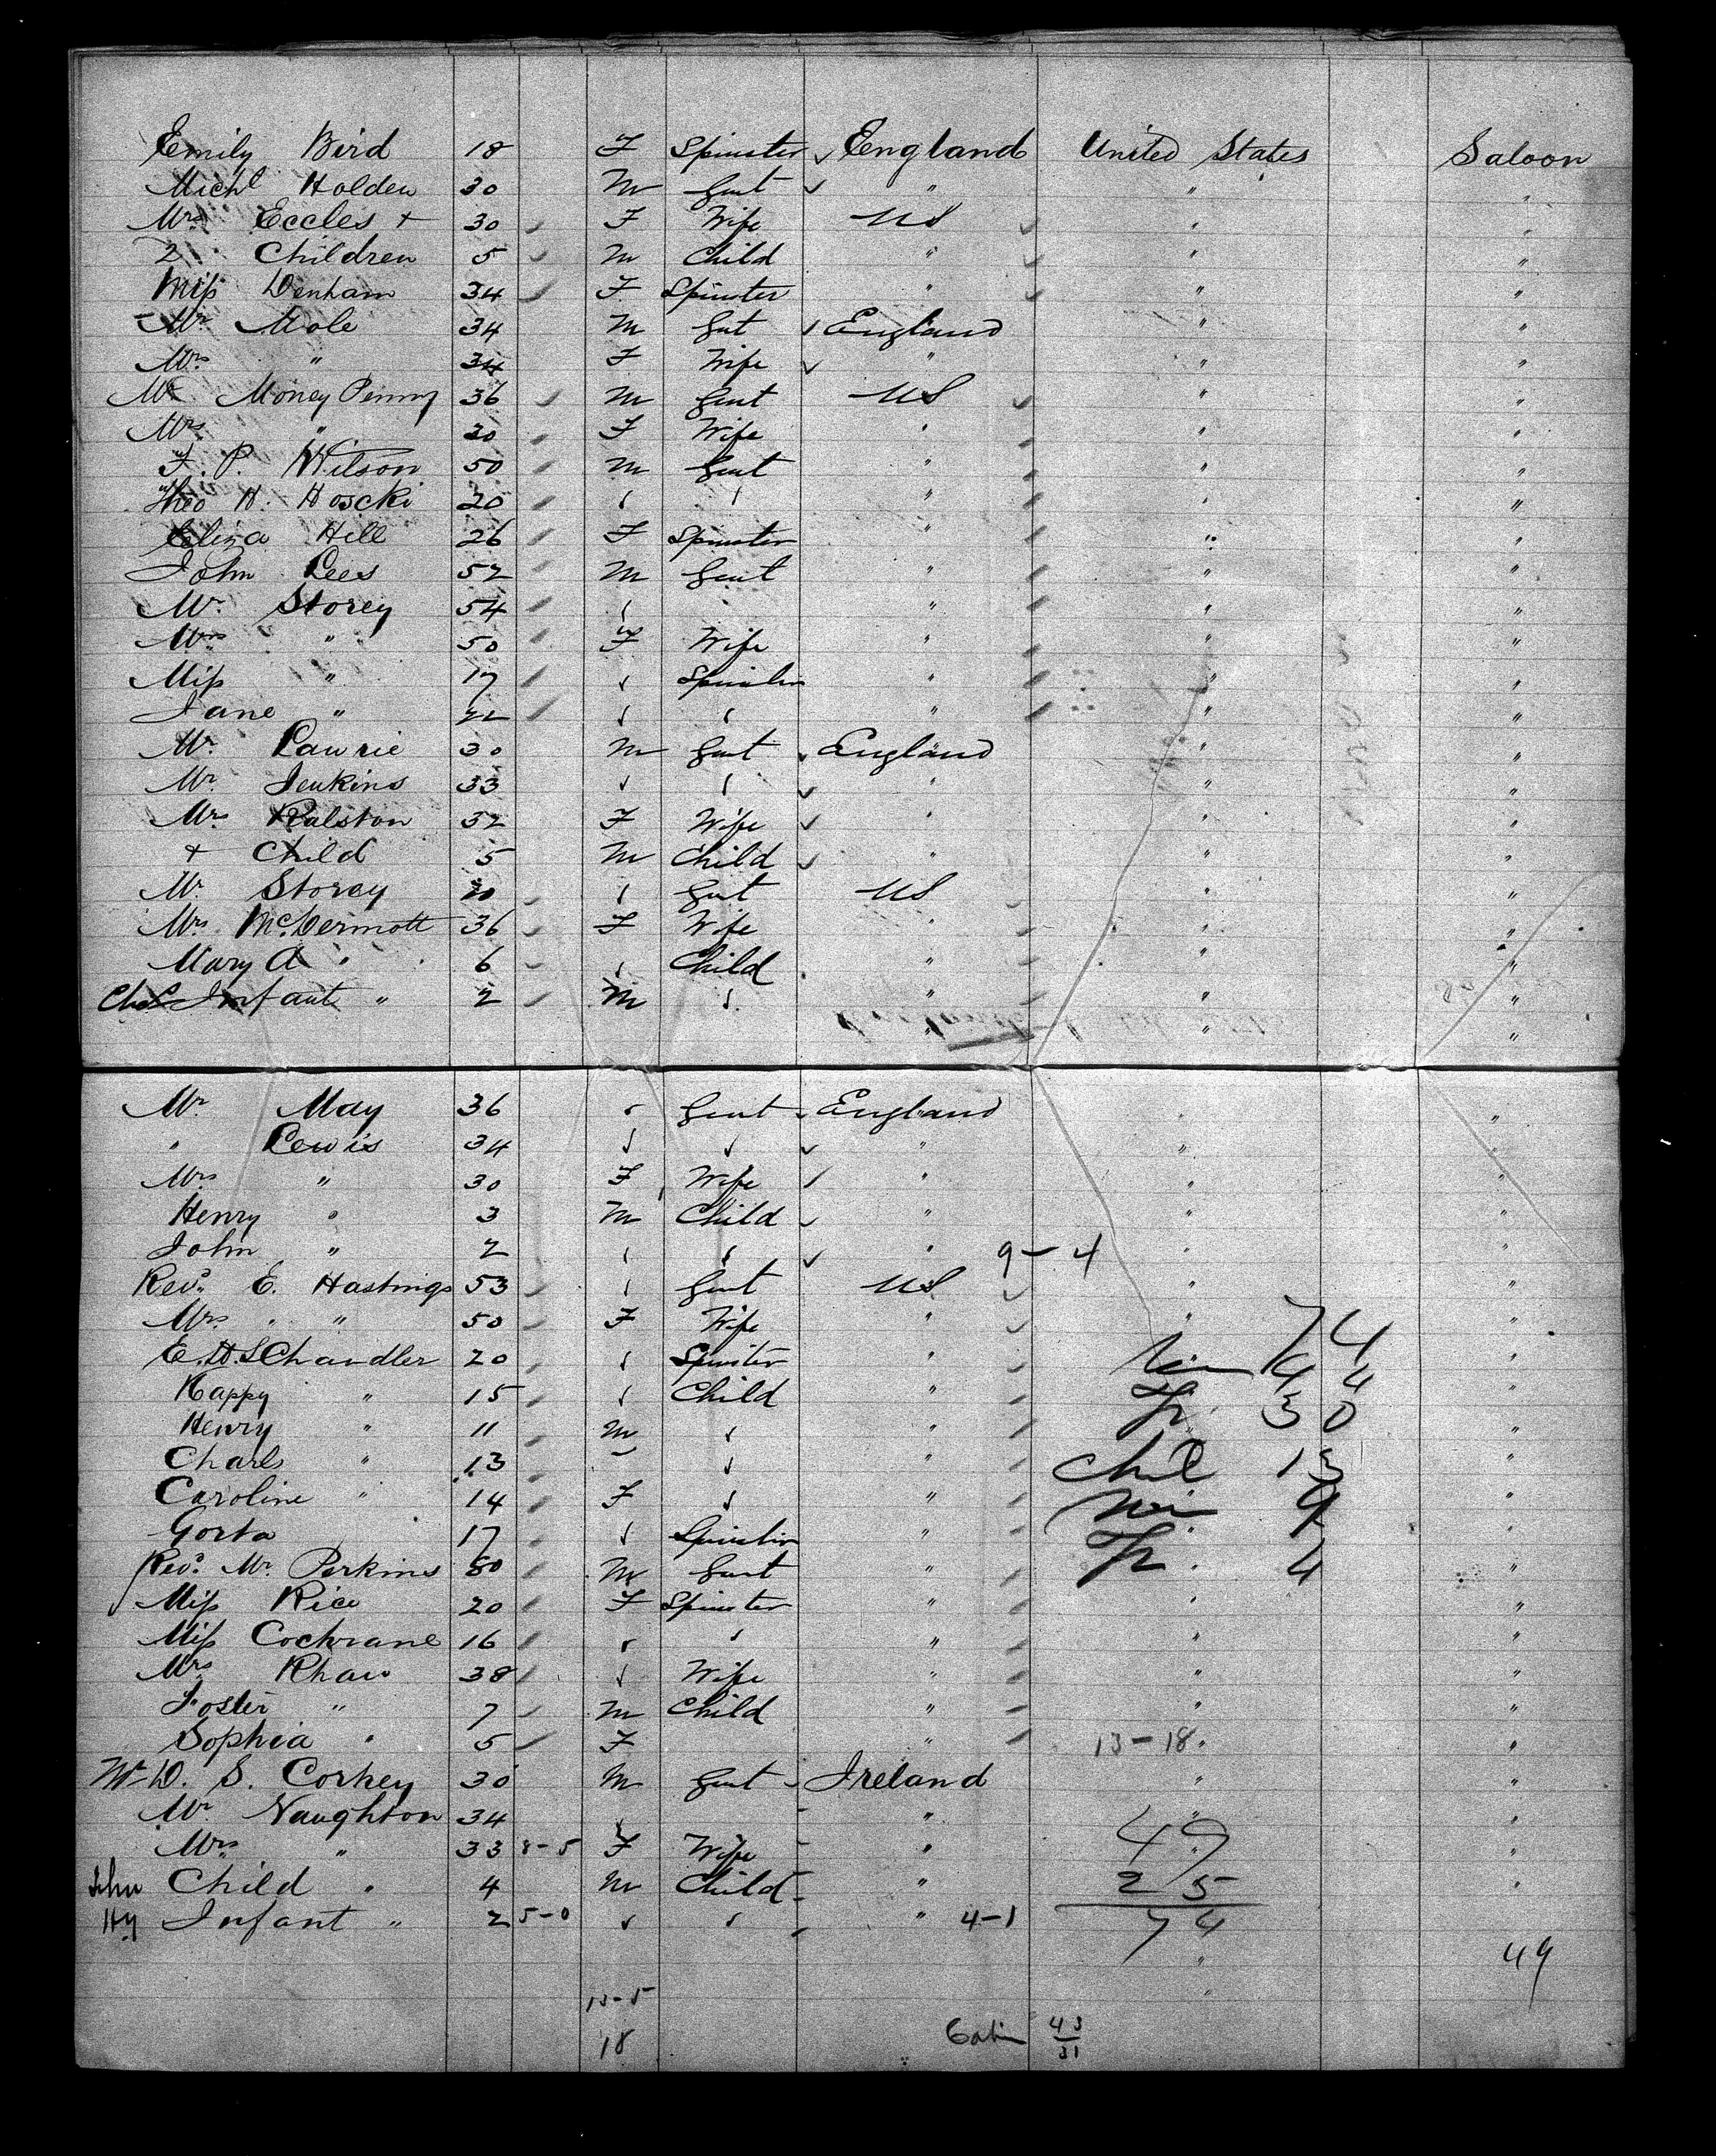 Emily Bird 18 F Spinster England United States Saloon
Michl Holden 30 M Gent " " "
Mrs Eccles + 30 F Wife US " "
2 Children 5 M Child " " "
Miss Denham 34 F Spinster " " "
Mr Mole 34 M Gent England " "
Mrs " 34 F Wife " " "
Mr Money Penny 36 M Gent US " "
Mrs " 30 F Wife " " "
F. P. Wilson 50 M Gent " " "
Theo H. Hoscki 20 " " " " "
Eliza Hill 26 F Spinster " " "
John Lees 52 M Gent " " "
Mr. Storey 54 " " " "
Mrs " 50 F Wife " " "
Miss " 17 " Spinster " " "
Jane " 22 " " " " "
Mr. Lawrie 30 M Gent England " "
Mr. Jenkins 33 " " " " "
Mrs Ralston 32 F Wife " " "
+ Child 5 M Child " " "
Mr. Storey 20 " Gent US " "
Mrs McDermott 36 F Wife " " "
Mary A " 6 " Child " " "
Chas Infant " 2 M " " " "
" " "
Mr May 36 " Gent England " "
" Lewis 34 " " " " "
Mrs " 30 F Wife " " "
Henry " 3 M Child " " "
John " 2 " " " 9-4 " "
Revd. E. Hastings 53 " Gent US " "
Mrs " " 50 F Wife " " "
74
E.H.S Chandler 20 " Spinster " 44 "
Kappy " 15 " Child " 30 "
Henry " 11 M " " "
Charls " 13 " " " Chil 13 "
Caroline " 14 F " " 9 "
Gorta 17 " Spinster " "
Revd. Mr. Perkins 50 M Gent " 4 "
Miss Rice 20 F Spinster " " "
Miss Cochrane 16 " " " " "
Mrs Rhaw 38 " Wife " " "
Foster " 7 M Child " " "
Sophia " 5 F " 13-18 " "
Mr D. S. Corkey 30 M Gent Ireland " "
Mr Naughton 34 " " " "
Mrs " 33 8-5 F Wife " 49 "
John Child " 4 M Child " 25 "
Hy Infant " 2 5-0 " " " 4-1 74
" 49
13-5
18 Cabin 43
31